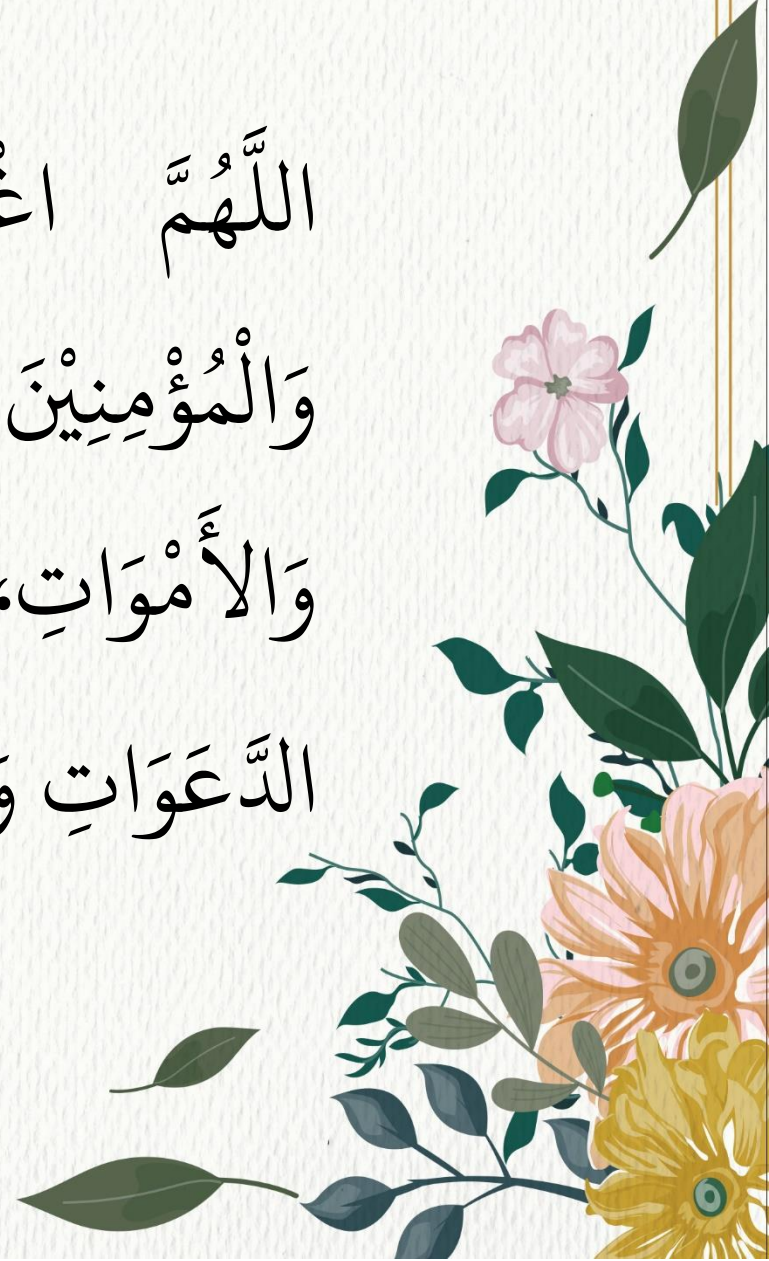 اللَّهُمَّ
وَالْمُؤْمِنِيْنَ
وَالأَمْوَاتِ،
الدَّعَوَاتِ